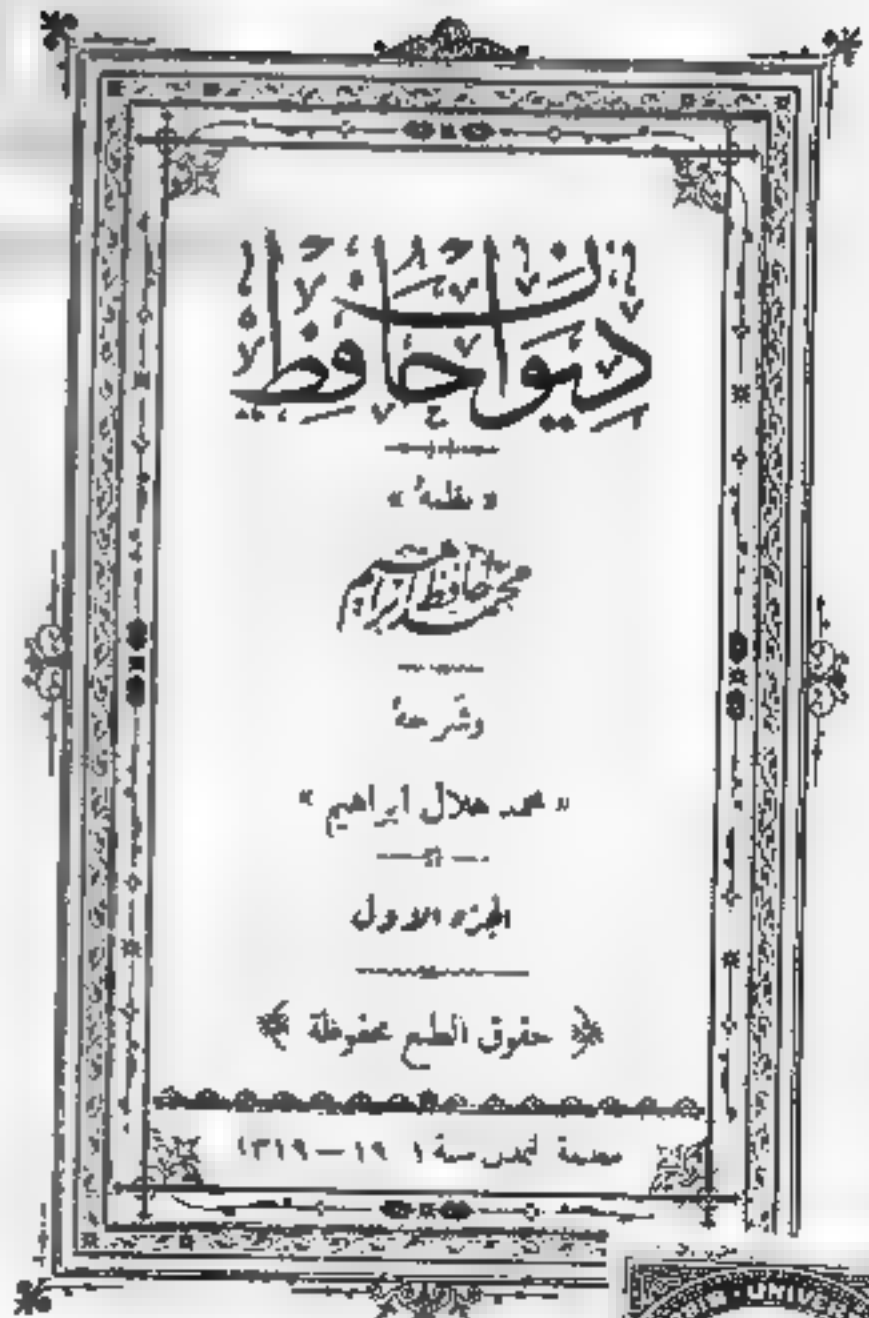 ديوان حافظ
« بقلمه »
محمد حافظ ابراهيم
وشرحه
« محمد هلال ابراهيم »
الجزء الاول
حقوق الطبع محفوظة
سنة ١٩ — ١٣١٩
UNIVERS